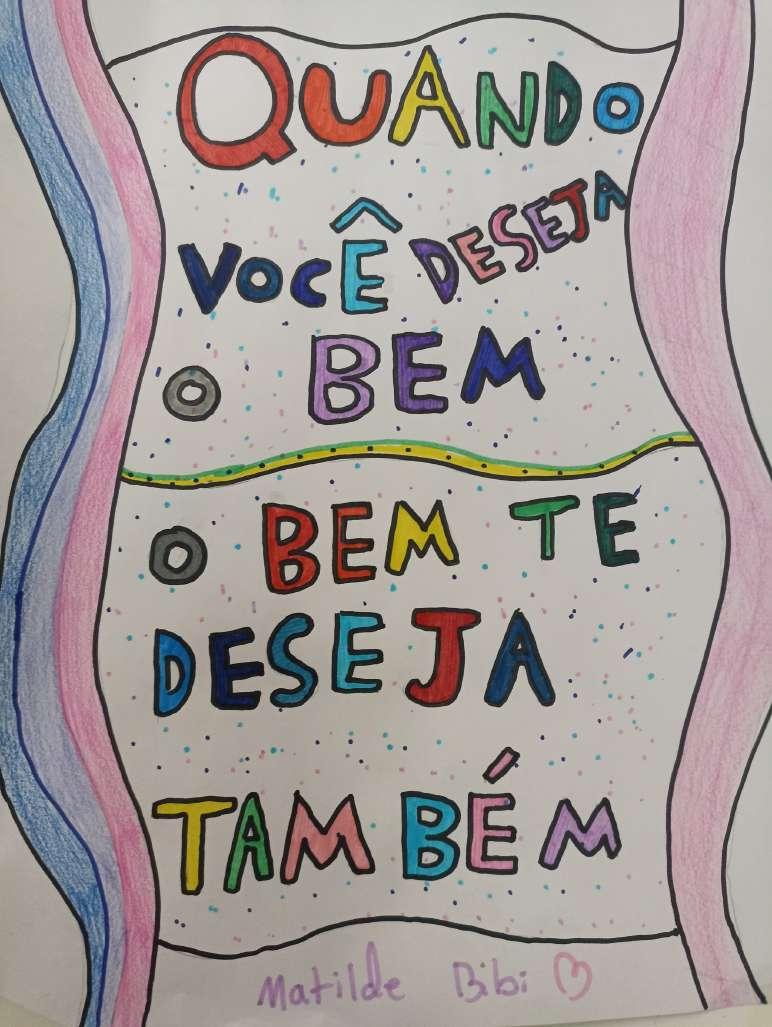 QUANDO
VOCÊ DESEJA
O BEM
O BEM TE
DESEJA
TAMBÉM
Matilde Bibi